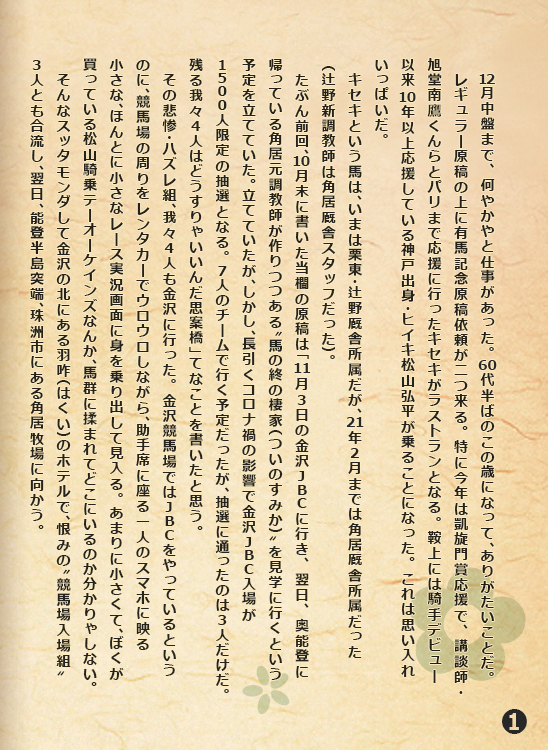 12月中盤まで、何やかやと仕事があった。60代半ばのこの歳になって、ありがたいことだ。
レギュラー原稿の上に有馬記念原稿依頼が二つ来る。特に今年は凱旋門賞応援で、講談師・
旭堂南鷹くんらとパリまで応援に行ったキセキがラストランとなる。鞍上には騎手デビュー
以来10年以上応援している神戸出身・ヒイキ松山弘平が乗ることになった。これは思い入れ
いっぱいだ。
キセキという馬は、いまは栗東・辻野厩舎所属だが、21年2月までは角居厩舎所属だった
(辻野新調教師は角居厩舎スタッフだった)。
たぶん前回、10月末に書いた当欄の原稿は「11月3日の金沢JBCに行き、翌日、奥能登に
帰っている角居元調教師が作りつつある〝馬の終の棲家(ついのすみか)〟を見学に行くという
予定を立てていた。立てていたが、しかし、長引くコロナ禍の影響で金沢JBC入場が
1500人限定の抽選となる。7人のチームで行く予定だったが、抽選に通ったのは3人だけだ。
残る我々4人はどうすりゃいいんだ思案橋」てなことを書いたと思う。
その悲惨・ハズレ組、我々4人も金沢に行った。金沢競馬場ではJBCをやっているという
のに、競馬場の周りをレンタカーでウロウロしながら、助手席に座る一人のスマホに映る
小さな、ほんとに小さなレース実況画面に身を乗り出して見入る。あまりに小さくて、ぼくが
買っている松山騎乗テーオーケインズなんか、馬群に揉まれてどこにいるのか分かりゃしない。
そんなスッタモンダして金沢の北にある羽咋(はくい)のホテルで、恨みの〝競馬場入場組〟
3人とも合流し、翌日、能登半島突端、珠洲市にある角居牧場に向かう。
1